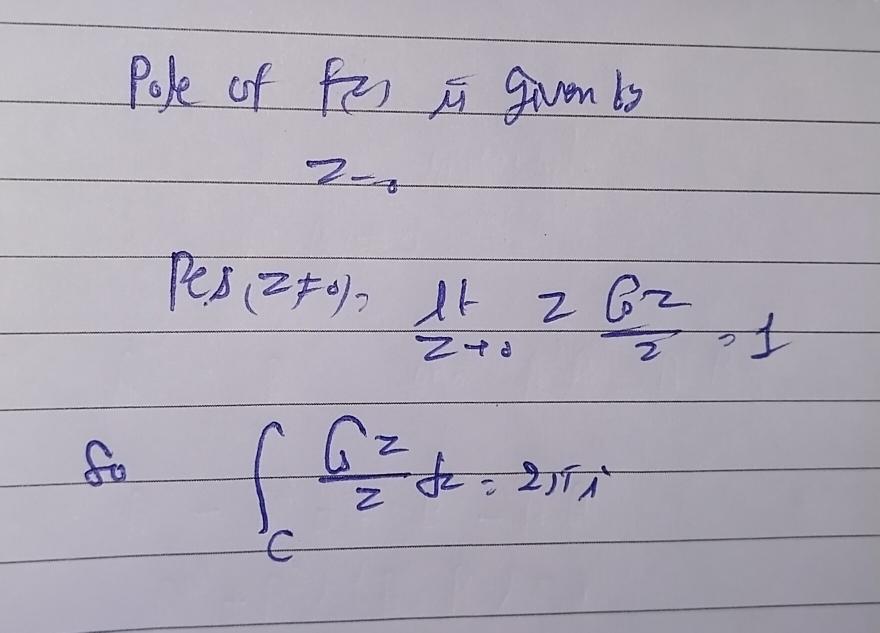 Pole of f(z) is given by
z=0
Res(z=0) = lt z→0 z Cos z / z = 1
So ∫_C Cos z / z dz = 2πi